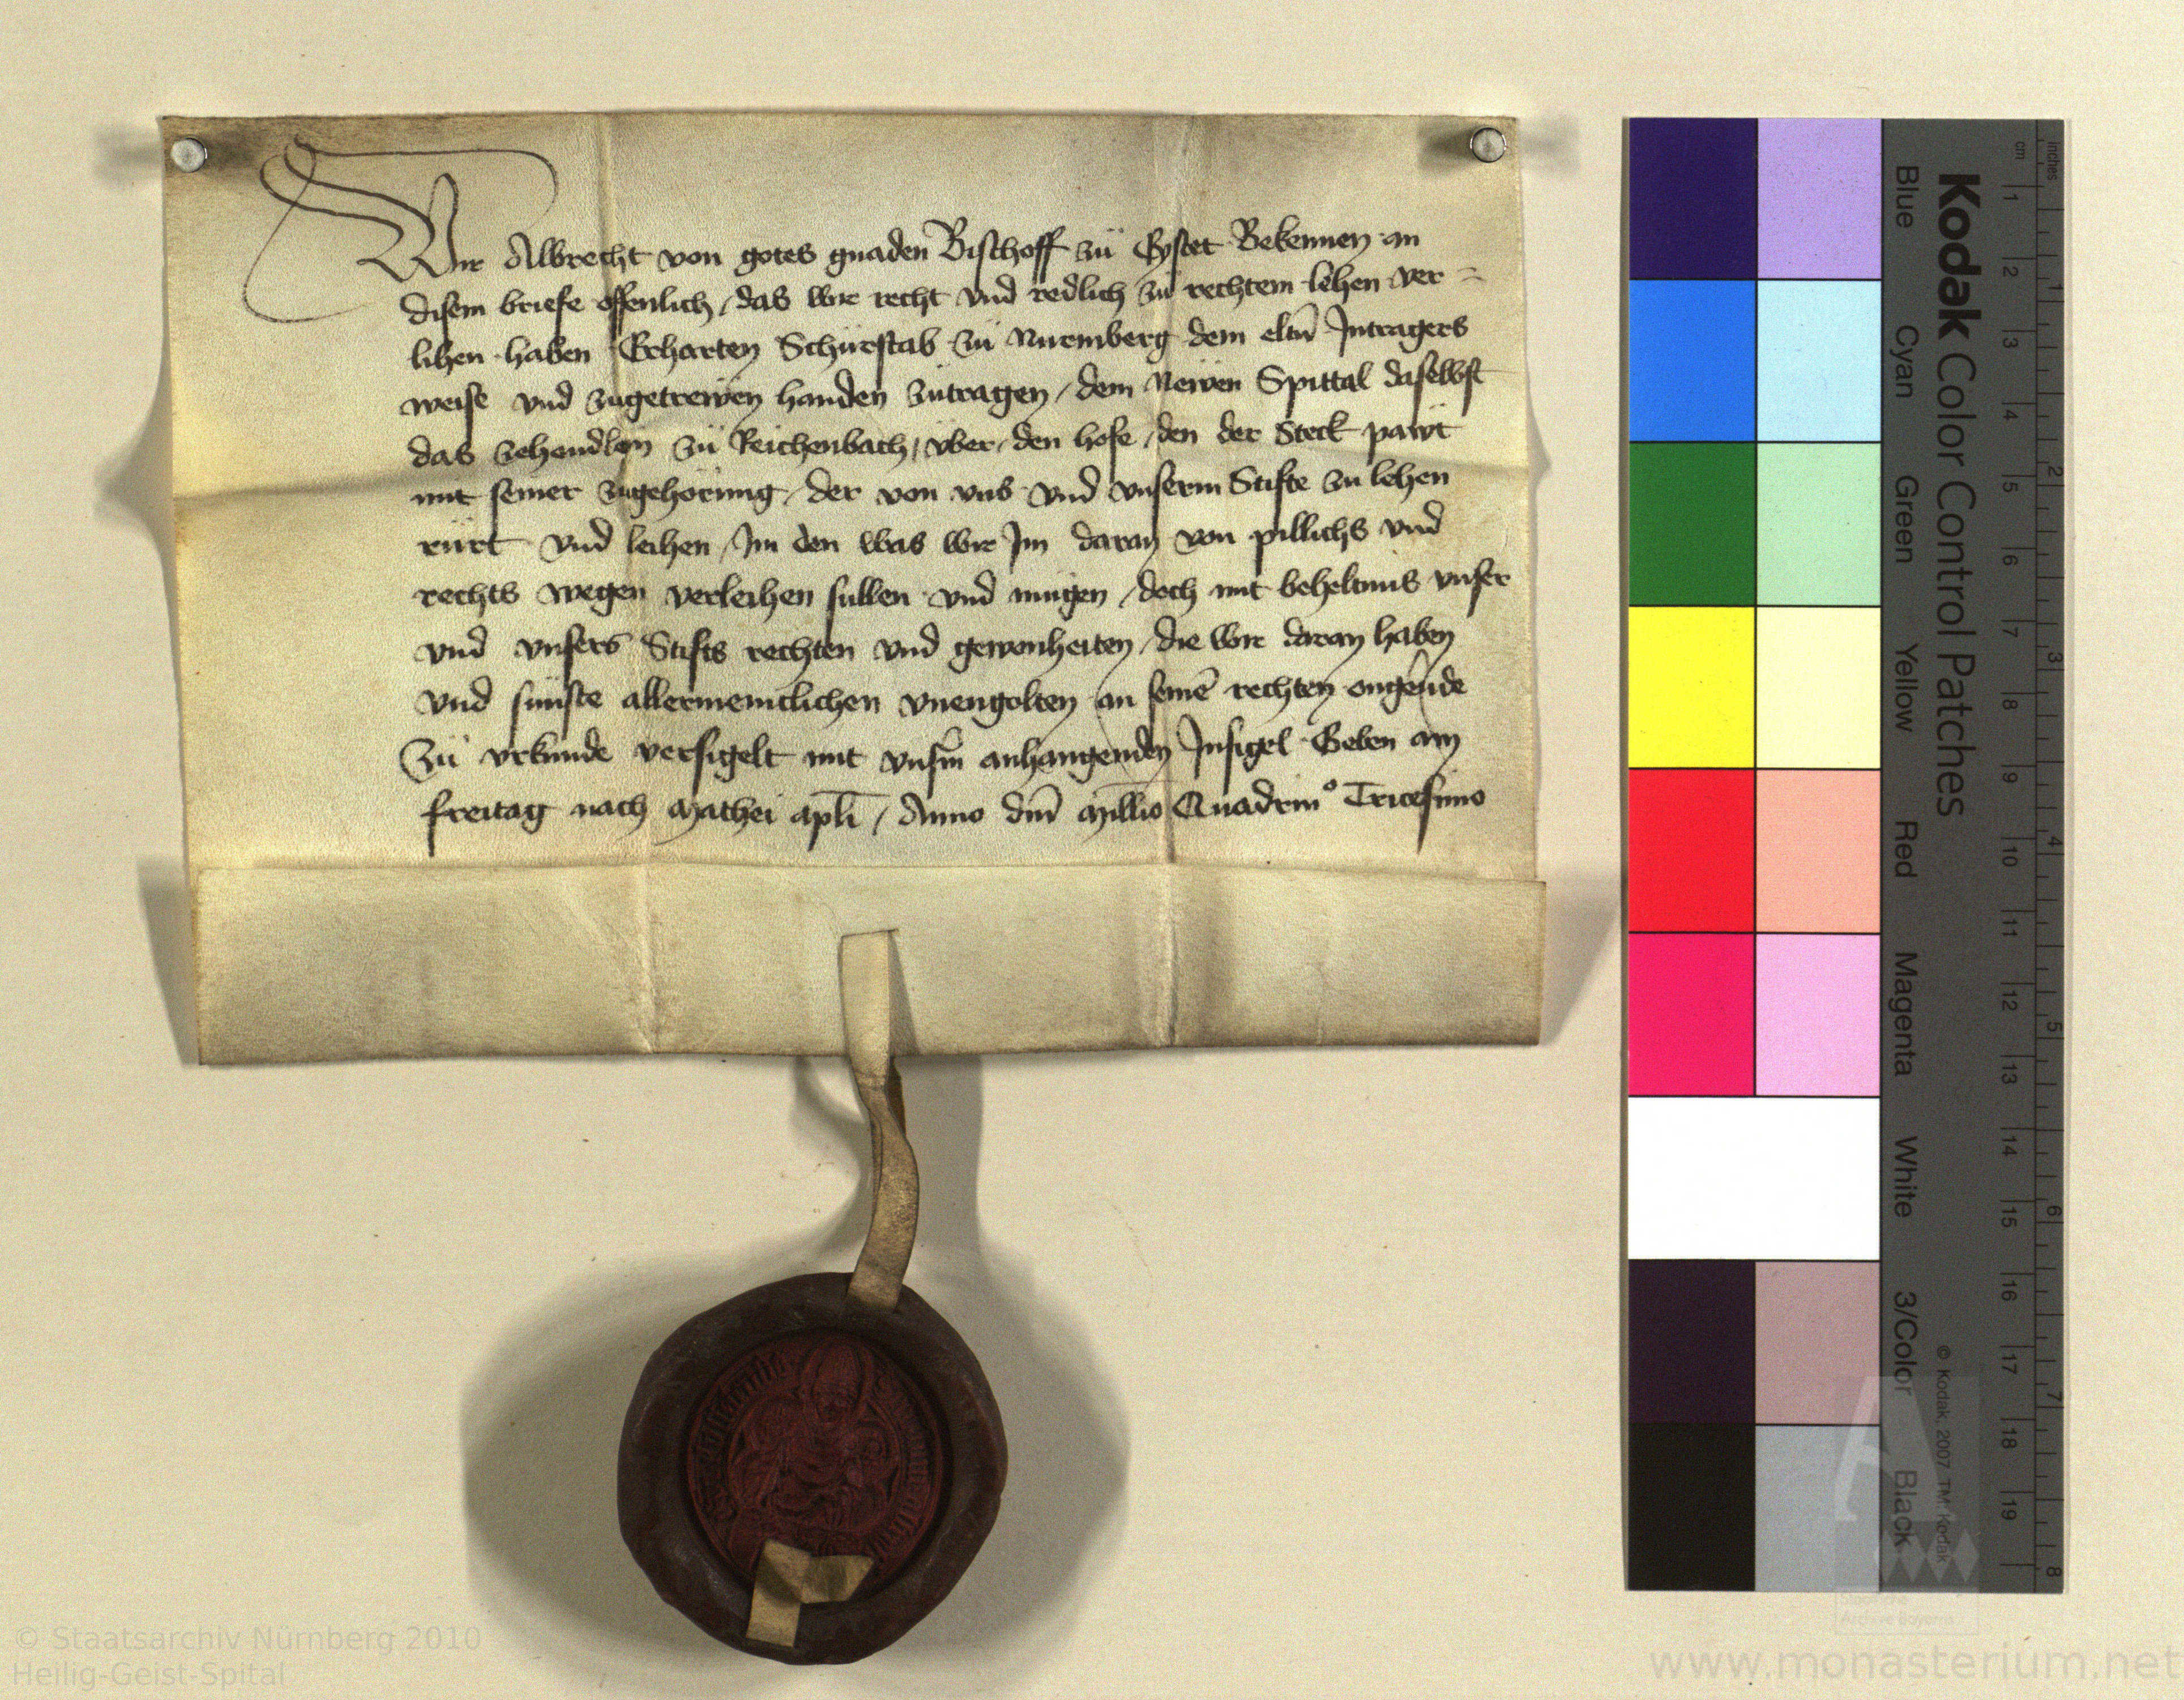 Wir Albrecht von gotes gnaden Bischoff zü Eystet Bekennen an
disem briefe offenlich, das wir recht vnd redlich zü rechtem lehen ver=
lihen haben Erharten Schürstab zü Nuremberg dem eltn̄ Intragers
weise vnd zugetrewen handen zütragen, dem Newen Spittal daselbst
das zehendlein zü Reichenbach, vber den hofe, den der Steck pawt
mit seiner zugehörung, der von vns vnd vnserm Stifte zu lehen
rürt vnd leihen Im den was wir Im daran von pillichs vnd
rechts wegen verleihen sullen vnd mügen, doch mit beheltnüs vnser
vnd vnsers Stifts rechten vnd gewonheiten, die wir daran haben
vnd sünste allermeniclichen vnengolten an seinē rechten ongeuͤde
Zü vrkunde versigelt mit vnsm̄ anhangenden Insigel Geben am
freitag nach Mathei apl̄i, Anno dn̄i Mill̄io Quadrinº Tricesimo
Kodak Color Control Patches
Blue Cyan Green Yellow Red Magenta White 3/Color Black
© Kodak, 2007 TM: Kodak
cm 1 2 3 4 5 6 7 8 9 10 11 12 13 14 15 16 17 18 19
inches 1 2 3 4 5 6 7 8
© Staatsarchiv Nürnberg 2010
Heilig-Geist-Spital
www.monasterium.net